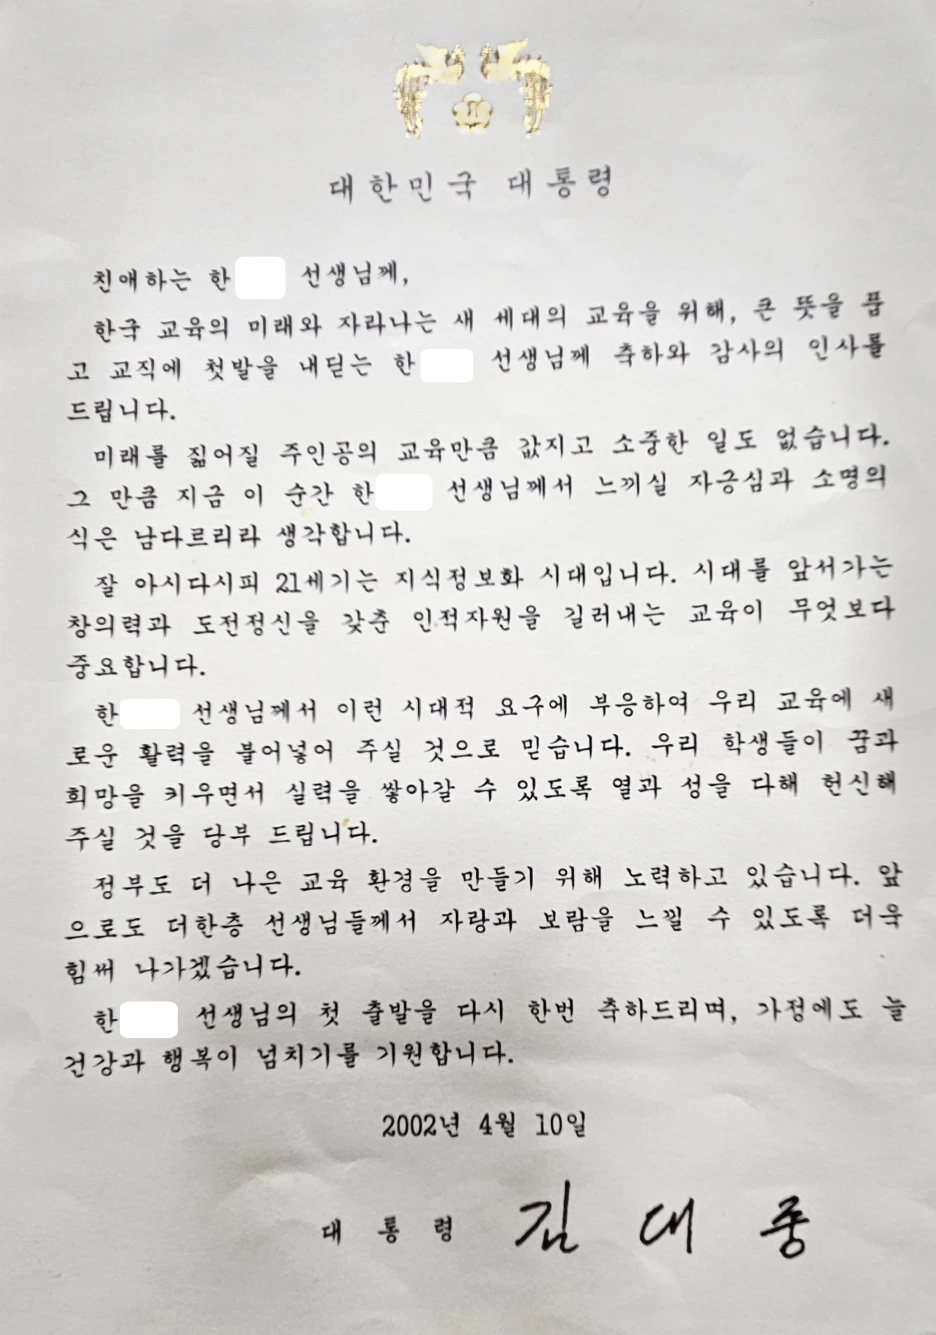 대한민국 대통령
친애하는 한 선생님께,
한국 교육의 미래와 자라나는 새 세대의 교육을 위해, 큰 뜻을 품
고 교직에 첫발을 내딛는 한 선생님께 축하와 감사의 인사를
드립니다.
미래를 짊어질 주인공의 교육만큼 값지고 소중한 일도 없습니다.
그 만큼 지금 이 순간 한 선생님께서 느끼실 자긍심과 소명의
식은 남다르리라 생각합니다.
잘 아시다시피 21세기는 지식정보화 시대입니다. 시대를 앞서가는
창의력과 도전정신을 갖춘 인적자원을 길러내는 교육이 무엇보다
중요합니다.
한 선생님께서 이런 시대적 요구에 부응하여 우리 교육에 새
로운 활력을 불어넣어 주실 것으로 믿습니다. 우리 학생들이 꿈과
희망을 키우면서 실력을 쌓아갈 수 있도록 열과 성을 다해 헌신해
주실 것을 당부 드립니다.
정부도 더 나은 교육 환경을 만들기 위해 노력하고 있습니다. 앞
으로도 더한층 선생님들께서 자랑과 보람을 느낄 수 있도록 더욱
힘써 나가겠습니다.
한 선생님의 첫 출발을 다시 한번 축하드리며, 가정에도 늘
건강과 행복이 넘치기를 기원합니다.
2002년 4월 10일
대 통 령 김 대 중